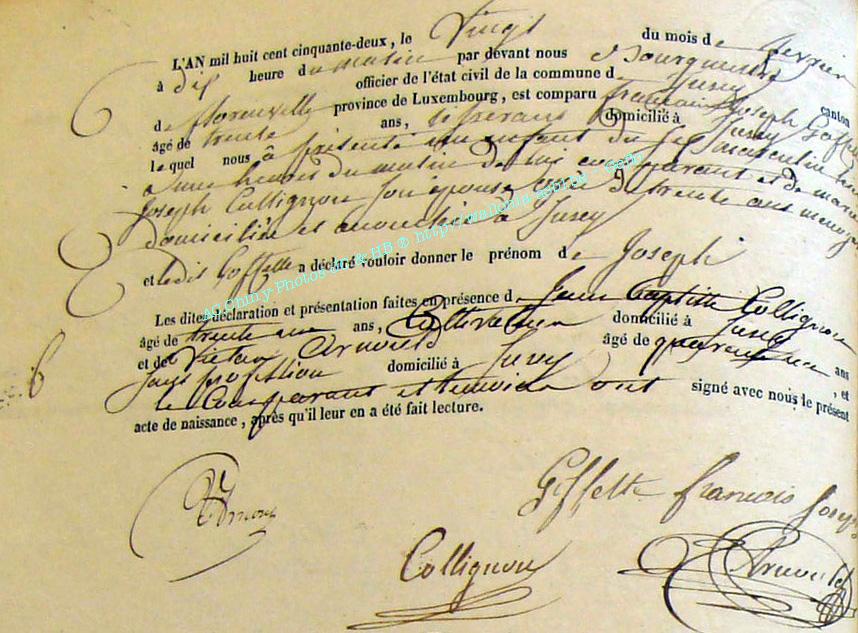 L'AN mil huit cent cinquante-deux, le Vingt du mois de fevrier
à dix heure du matin par devant nous Bourgmestre
officier de l'état civil de la commune de Jusey canton
de florenville province de Luxembourg, est comparu francois Joseph Goffette
âgé de trente ans, domicilié à Jusey
lequel nous à présenté un enfant du sexe masculin
a une heures du matin de lui comparant et de
Joseph Collignon son epouse agée de trente ans
domiciliée et a Jusey
et ledit Goffette a déclaré vouloir donner le prénom de Joseph
Les dites déclaration et présentation faites en présence de Jean Baptiste Collignon
âgé de trente un ans, Cultivateur domicilié à Jusey
et de Victor Arnould âgé de quarante ans, et
sans profession domicilié à Jusey
le Comparant et temoins ont signé avec nous le présent
acte de naissance, après qu'il leur en a été fait lecture.
Goffette francois Joseph
Collignon
Arnould
AC Chiny-Photos GM & HB ® http://wallonia-asbl.be